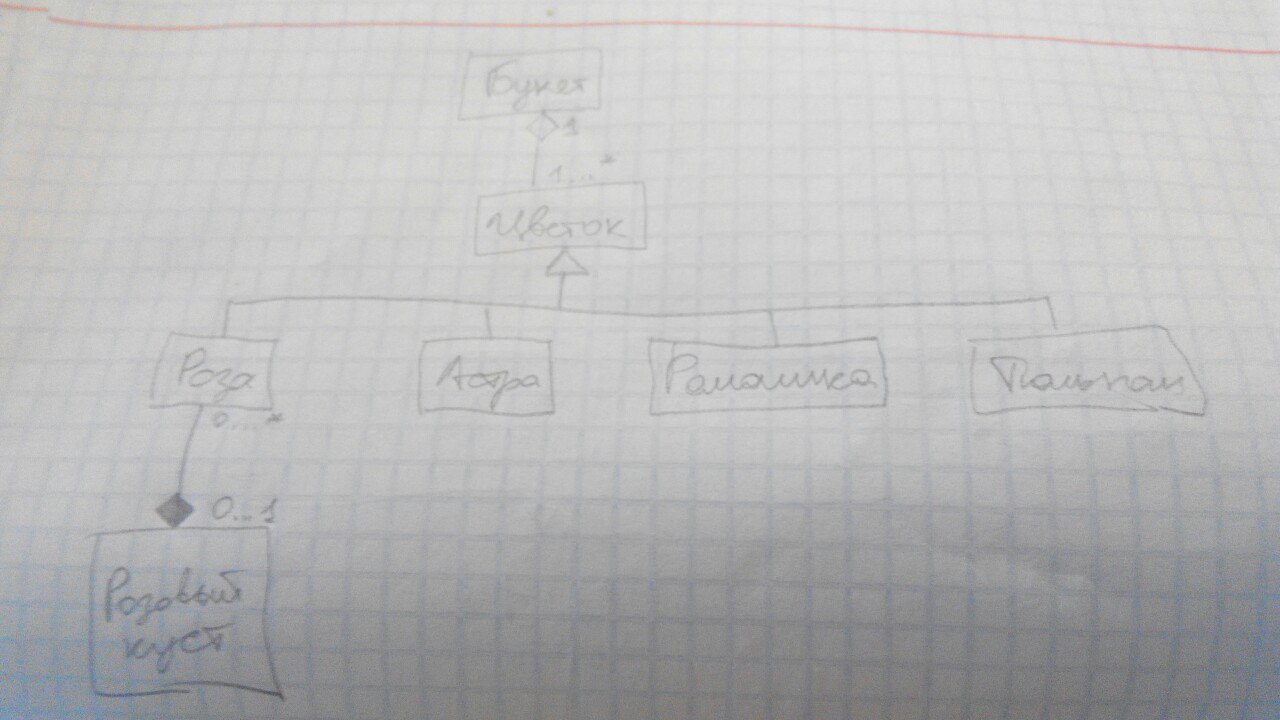 Букет
1
1...*
Цветок
Роза
Астра
Ромашка
Тюльпан
0...*
0...1
Розовый
куст